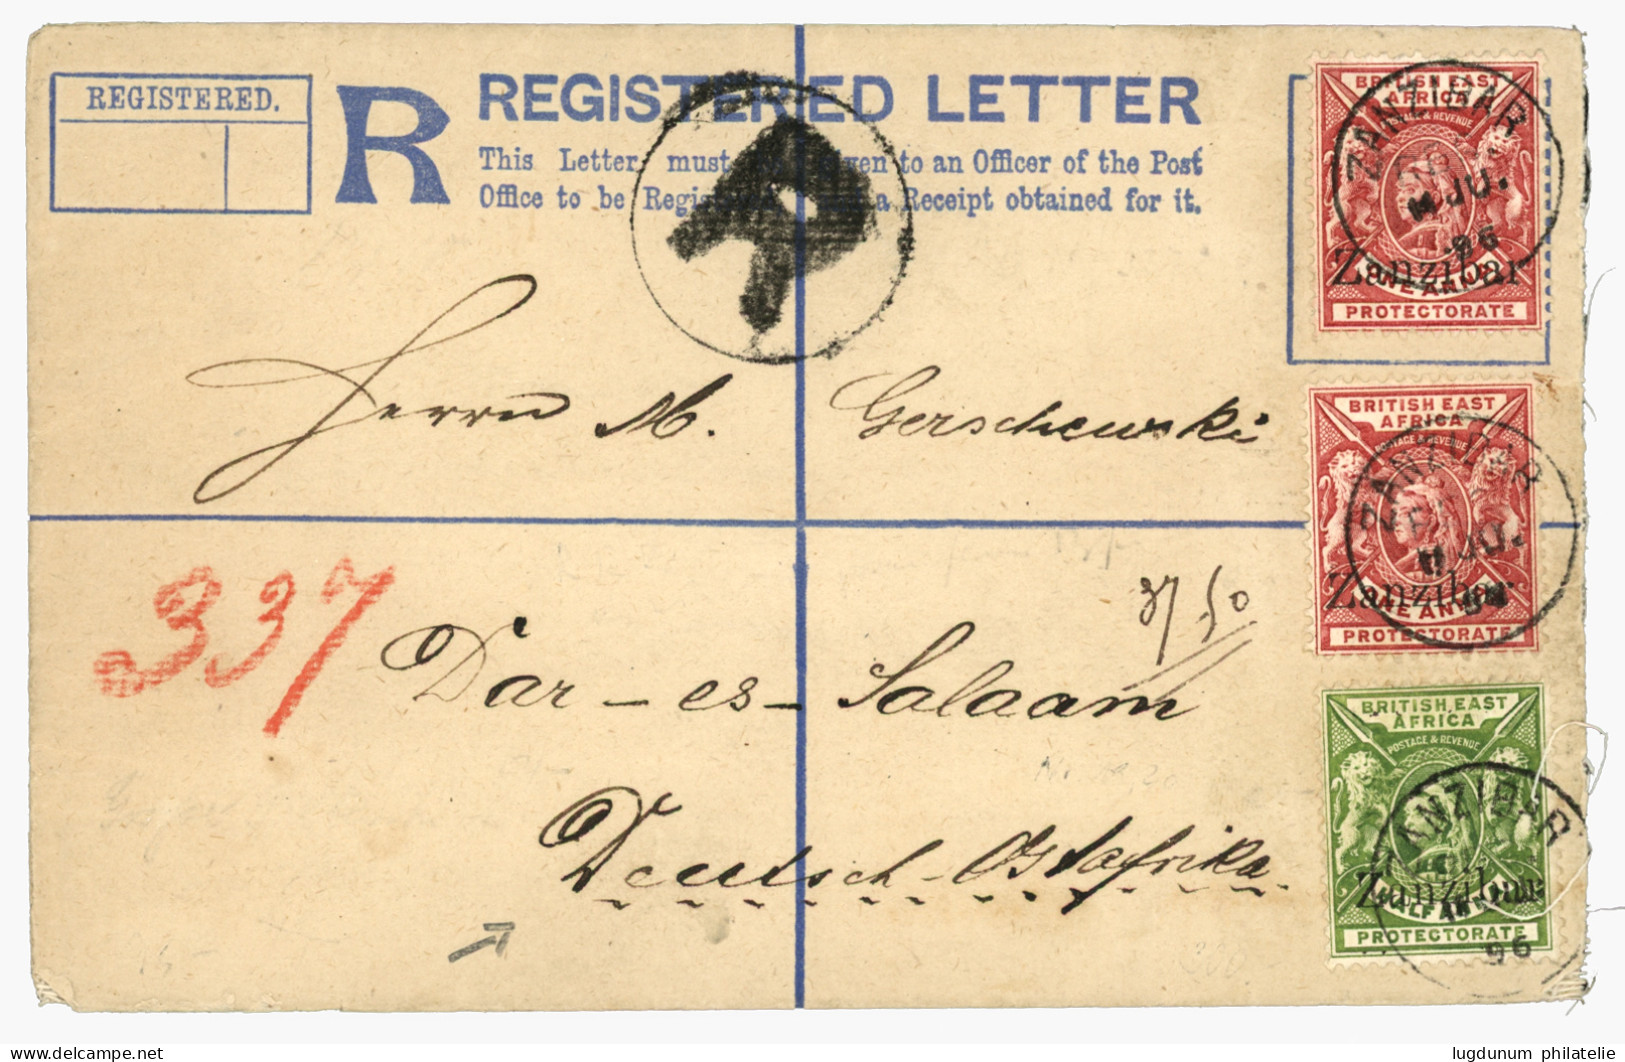 REGISTERED.
R
REGISTERED LETTER
This Letter must given to an Officer of the Post
Office to be Registered a Receipt obtained for it.
R
BRITISH EAST
AFRICA
POSTAGE & REVENUE
ZANZIBAR
JU.
96
Zanzibar
ONE ANNA
PROTECTORATE
Herrn M. Gerschewski
BRITISH EAST
AFRICA
POSTAGE & REVENUE
ZANZIBAR
JU.
Zanzibar
ONE ANNA
PROTECTORATE
337
37 50
Dar-es-Salaam
BRITISH EAST
AFRICA
POSTAGE & REVENUE
ZANZIBAR
Zanzibar
HALF ANNA
96
PROTECTORATE
Deutsch-Ostafrika
www.delcampe.net
lugdunum philatelie